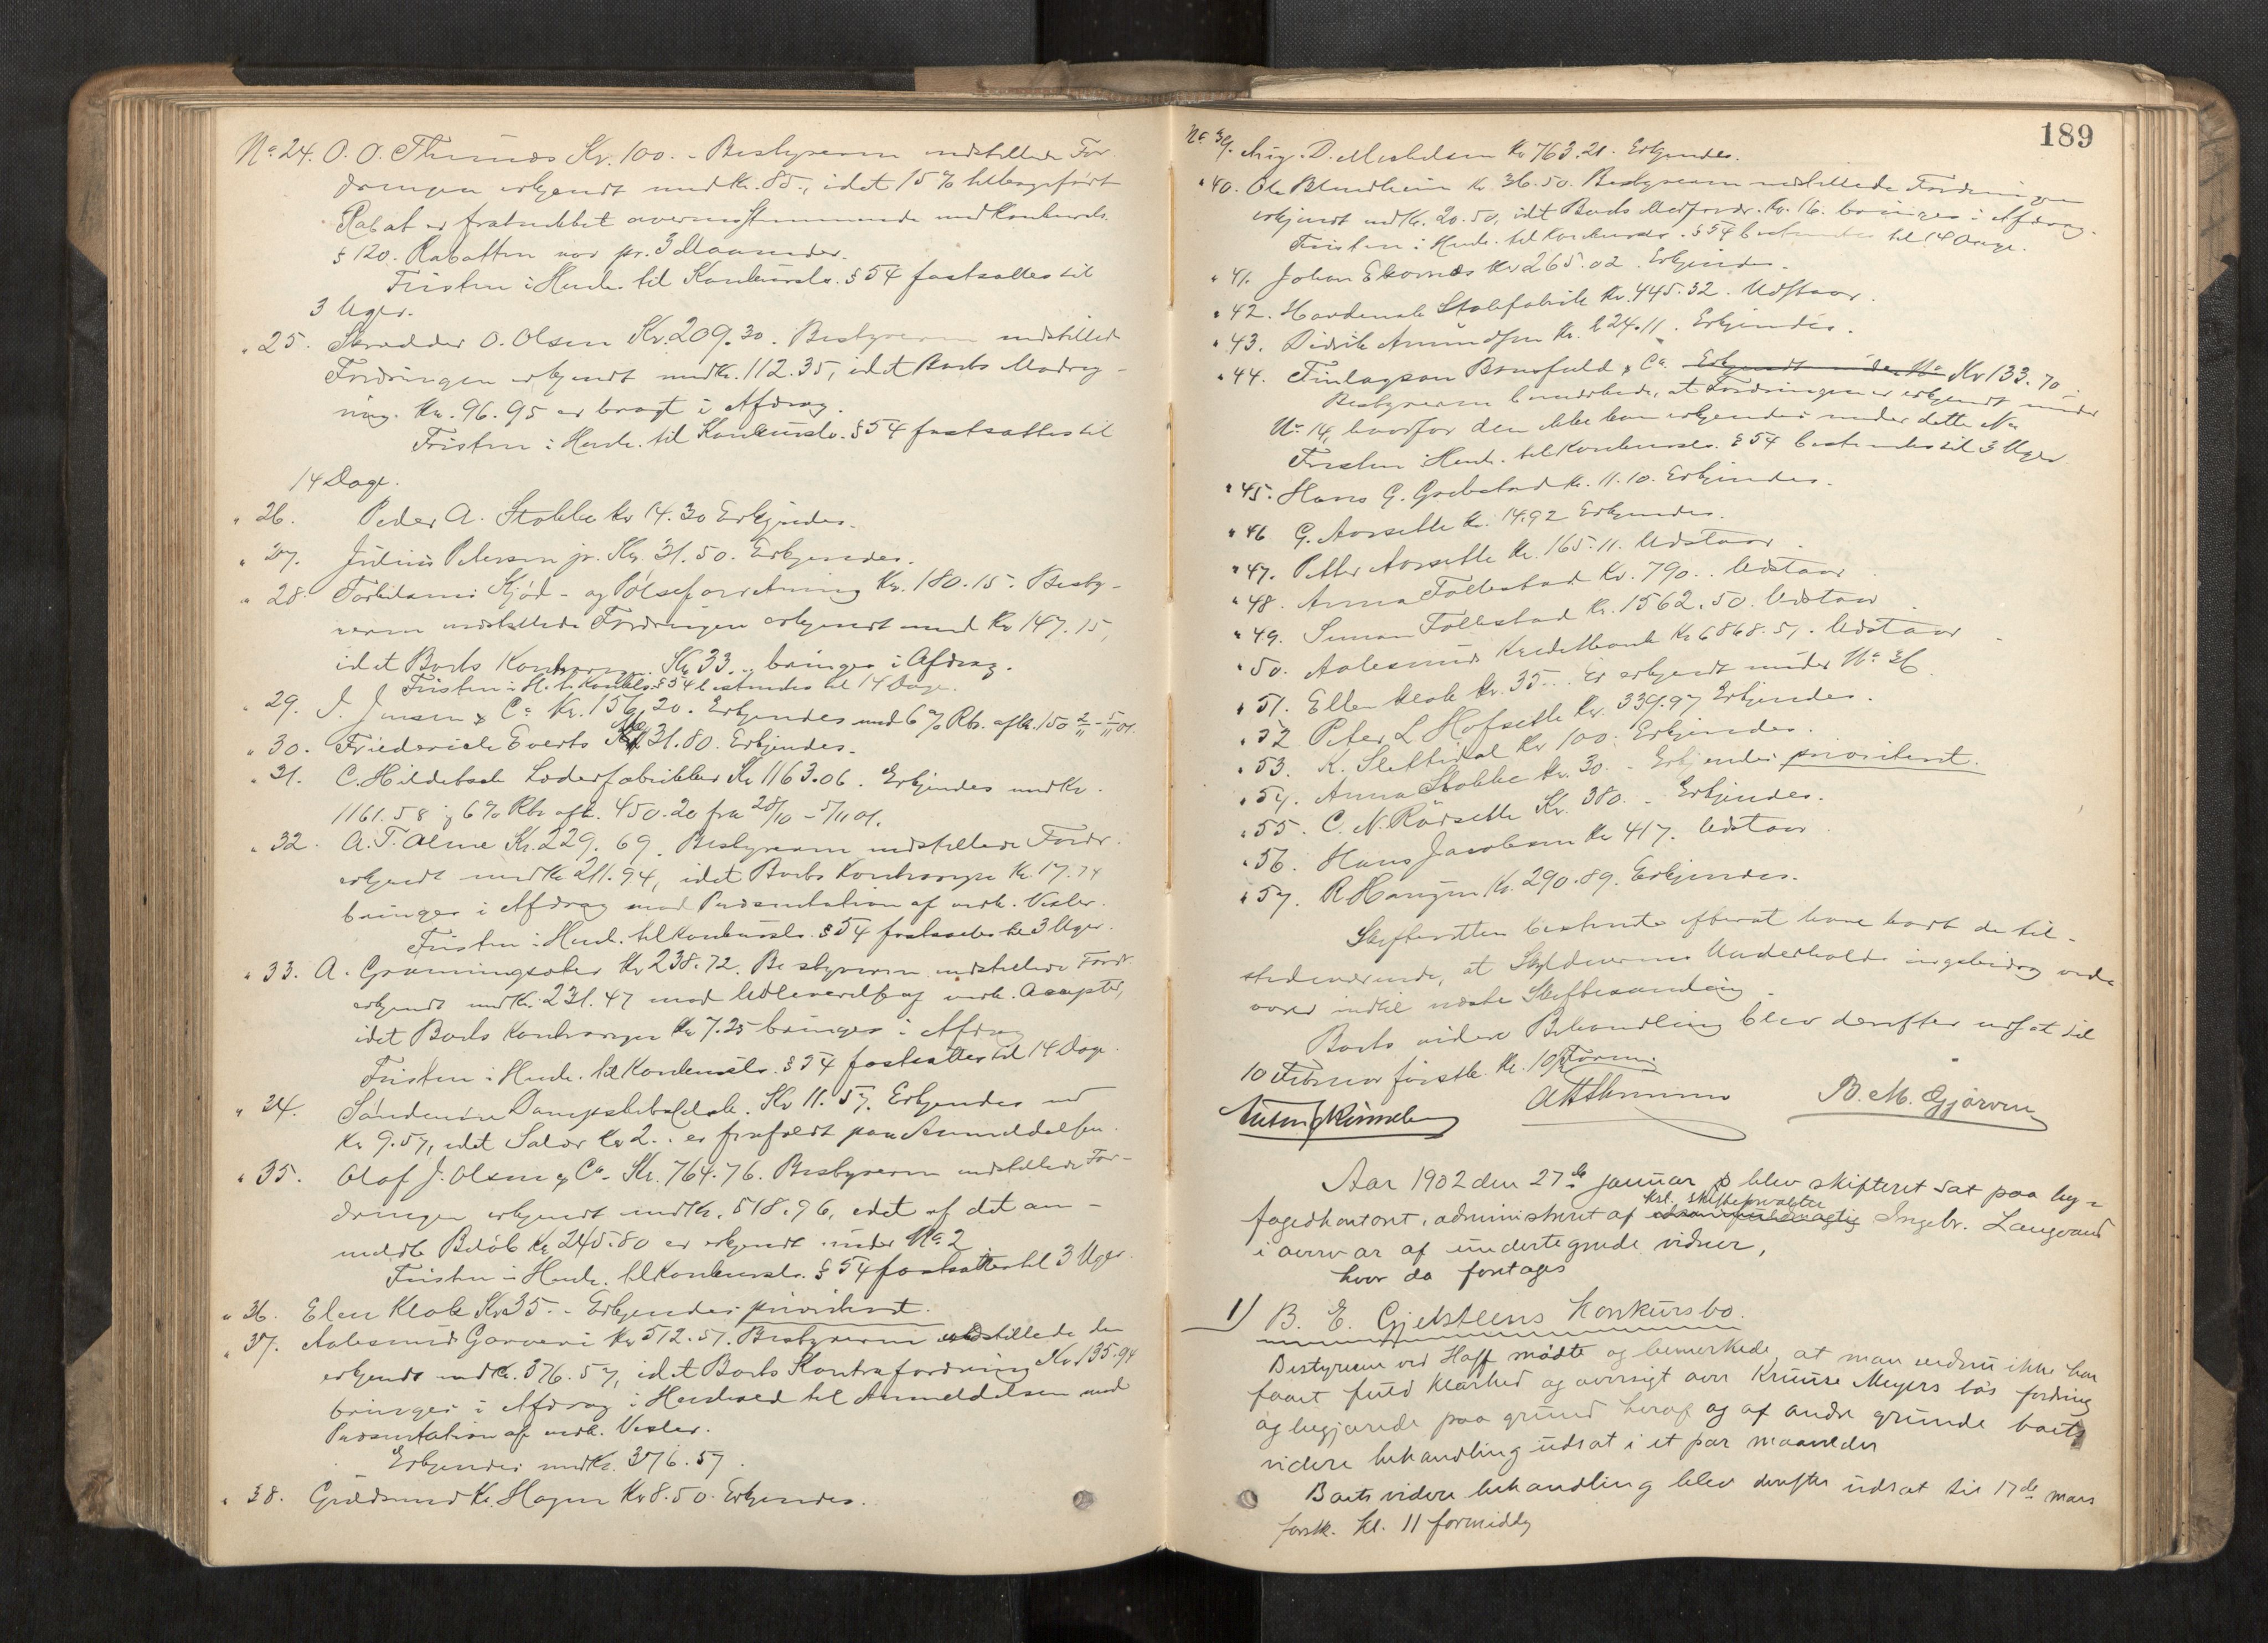 No 24. O. O. Thunæs Kr. 100. - Bestyreren indstillede For
dringen erkjendt med Kr. 85., idet 15 % tilbageført
Rabat er fratrukket overensstemmende med Konkursl.
§ 120. Rabatten var pr. 3 Maaneder.
Fristen i Henh. til Konkursl. § 54 fastsattes til
3 Uger.
" 25. Skrædder O. Olsen Kr. 209.30. Bestyreren indstillede
Fordringen erkjendt med Kr. 112.35, idet Boets Modreg-
ning Kr. 96.95 er bragt i Afdrag.
Fristen i Henh. til Konkursl. § 54 fastsattes til
14 Dage.
" 26. Peder A. Stokke Kr 14.30 Erkjendes.
" 27. Julius Petersen jr. Kr. 31.50. Erkjendes.
" 28. Kjød- og Pølseforretning Kr. 180.15. Besty-
reren indstillede Fordringen erkjendt med Kr 147.15,
idet Boets Kr 33.. bringes i Afdrag.
Fristen i H. t. Konkl. § 54 bestemtes til 14 Dage.
" 29. J. Jensen & Co Kr. 156.20. Erkjendes med 6 % Rtr. af Kr. 150 2/11 - 5/11 01.
" 30. Friederich Everts 31.80. Erkjendes.
" 31. C. Hildebach Læderfabrikker Kr 1163.06. Erkjendes med Kr.
1161.58 6 % Rtr af Kr. 450.20 fra 28/10 - 5/11 01.
" 32. A. T. Alme Kr. 229.69. Bestyreren indstillede Fordr.
erkjendt med Kr 211.94, idet Boets Kontrakrav Kr. 17.74
bringes i Afdrag mod Præsentation af vedk. Vexler.
Fristen i Henh. til Konkursl. § 54 fastsattes til 3 Uger.
" 33. A. Grønningsæter Kr 238.72. Bestyreren indstillede Fordr.
erkjendt med Kr. 231.47 mod Udleverelse af vedk. Accepter,
idet Boets Kontrakrav Kr 7.25 bringes i Afdrag
Fristen i Henh. til Konkursl. § 54 fastsattes til 14 Dage.
" 34. Søndmøre Dampskibsselsk. Kr 11.57. Erkjendes med
Kr 9.57, idet Salær Kr 2.. er frafaldt paa Anmeldelsen.
" 35. Olaf J. Olsen & Co. Kr. 764.76. Bestyreren indstillede For-
dringen erkjendt med Kr. 518.96, idet af det an-
meldte Beløb Kr 245.80 er erkjendt under No 2
Fristen i Henh. til Konkursl. § 54 fastsattes til 3 Uger
" 36. Elen Klok Kr 35.- Erkjendes prioritert.
" 37. Aalesunds Garveri Kr 512.51. Bestyreren indstillede den
erkjendt med Kr. 376.57, idet Boets Kontrafordring Kr 135.94
bringes i Afdrag i Henhold til Anmeldelsen mod
Præsentation af vedk. Vexler.
Erkjendes med Kr. 376.57.
" 38. Guldsmed K. Hagen Kr 8.50. Erkjendes.
189
No 39. Aug. D. Michelsen Kr 763.21. Erkjendes.
" 40. Ole Blindheim Kr. 36.50. Bestyreren indstillede Fordringen
erkjendt med Kr. 20.50, idet Boets Modfordr. Kr. 16. bringes i Afdrag.
Fristen i Henh. til Konkursl. § 54 bestemtes til 14 Dage.
" 41. Johan Ekornæs Kr 265.02. Erkjendes.
" 42. Hovdenak Stolefabrik Kr. 445.32. Udstaar.
" 43. Didrik Amundsen Kr. 124.11. Erkjendes.
" 44. Finlayson Bousfield & Co. Erkjendt under No Kr 133.70
Bestyreren bemærkede, at Fordringen er erkjendt under
No 14, hvorfor den ikke kan erkjendes under dette No
Fristen i Henh. til Konkursl. § 54 bestemtes til 3 Uger.
" 45. Hans G. Grebstad Kr. 11.10. Erkjendes.
" 46 G. Aarsetle Kr. 14.92 Erkjendes.
" 47. Petter Aarsetle Kr. 165.11. Udstaar.
" 48. Anna Follestad Kr. 790.. Udstaar
" 49. Simon Follestad Kr. 1562.50. Udstaar.
" 50. Aalesunds Kreditbank Kr 6868.51. Udstaar.
" 51. Ellen Klok Kr. 35... Er erkjendt under No 36
" 52 Peter L Hofsetle Kr. 339.97 Erkjendes.
" 53. K. Slettedal Kr 100. Erkjendes.
" 54. Anna Stokke Kr. 30. - Erkjendes prioritert.
" 55. C. N. Rødsetle Kr. 380. - Erkjendes.
" 56. Hans Jacobsen Kr 417. Udstaar.
" 57. R Haugen Kr. 290.89. Erkjendes.
Skifteretten bestemte efterat have hørt de til-
stedeværende, at Skyldnerens Underholds bidrag ved-
varer indtil næste Skiftesamling.
Boets videre Behandling blev derefter udsat til
10 Februar førstk. Kl. 10 Form.
B. M. Gjørven
Aar 1902 den 27de januar blev skifteret sat paa by-
fogedkontoret, administreret af kst. skifteforvalter Ingebr. Langvand
i overvær af undertegnede vidner,
hvor da foretages
1) B. E. Gjelsteens konkursbo.
Bestyreren ved Hoff mødte og bemerkede, at man endnu ikke har
faaet fuld klarhed og oversigt over Kruuse Meyers bos fordring
og begjærede paa grund heraf og af andre grunde boets
videre behandling udsat i et par maaneder
Boets videre behandling blev derefter udsat til 17de mars
førstk. kl. 11 formiddag